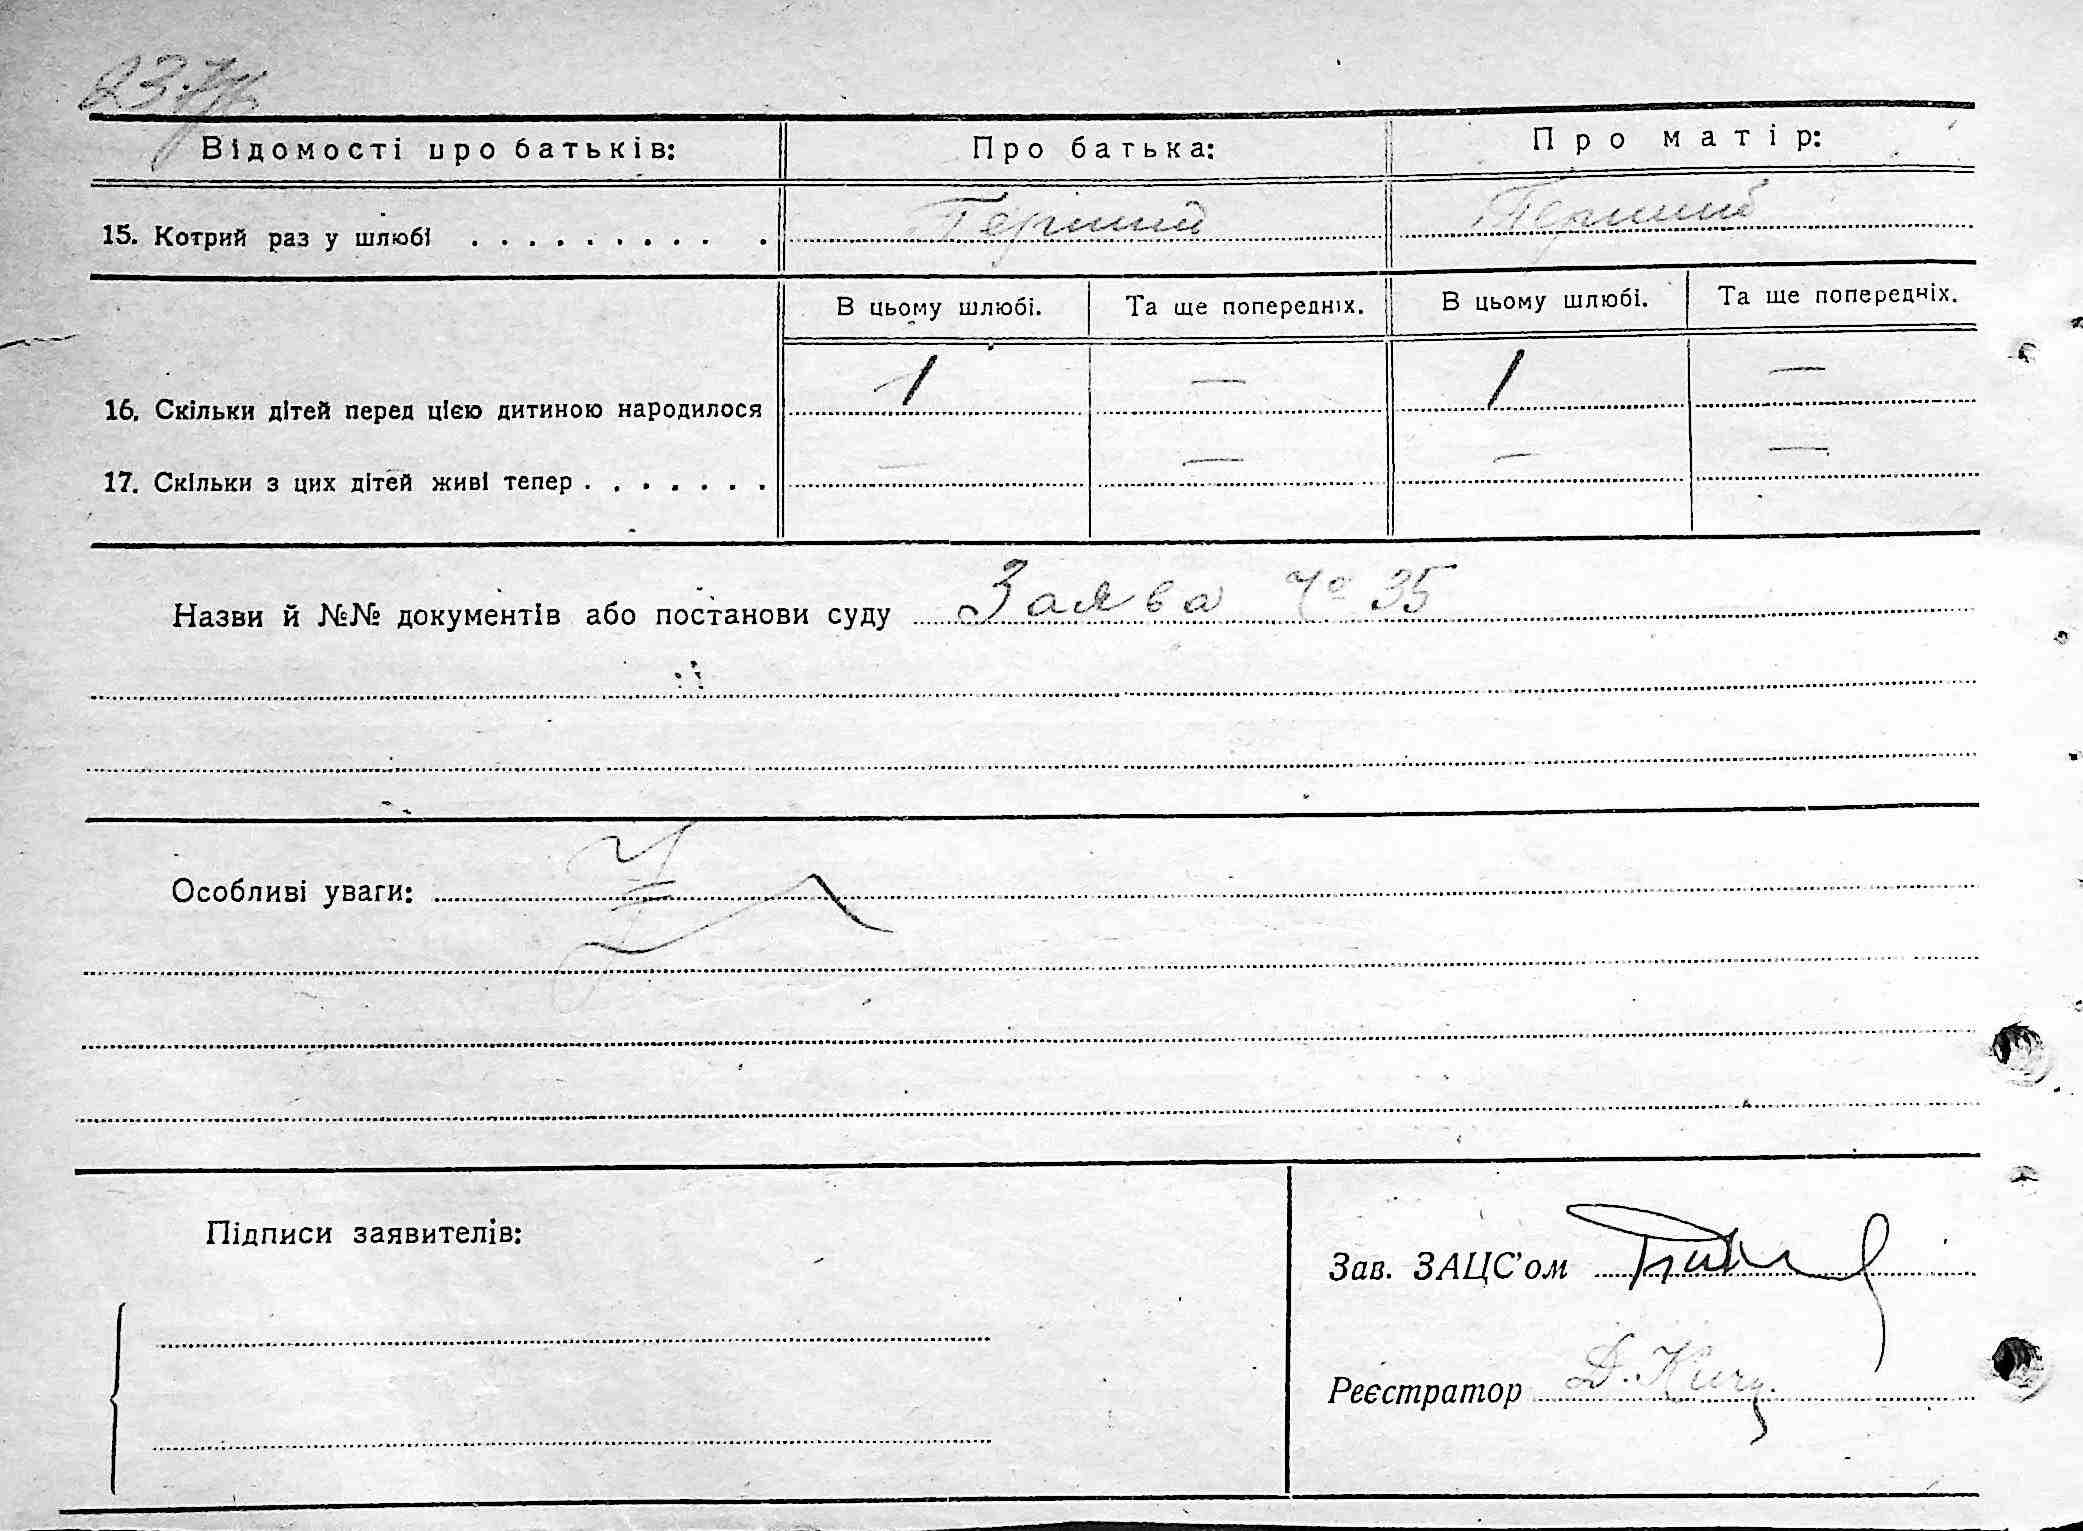 Відомості про батьків: Про батька: Про матір:
15. Котрий раз у шлюбі . . . . . . . . . . . Перший Перший
В цьому шлюбі. Та ще попередніх. В цьому шлюбі. Та ще попередніх.
16. Скільки дітей перед цією дитиною народилося 1 — 1 —
17. Скільки з цих дітей живі тепер . . . . . . . — — — —
Назви й №№ документів або постанови суду Заява № 35
Особливі уваги:
Підписи заявителів:
Зав. ЗАЦС'ом
Реєстратор Д.